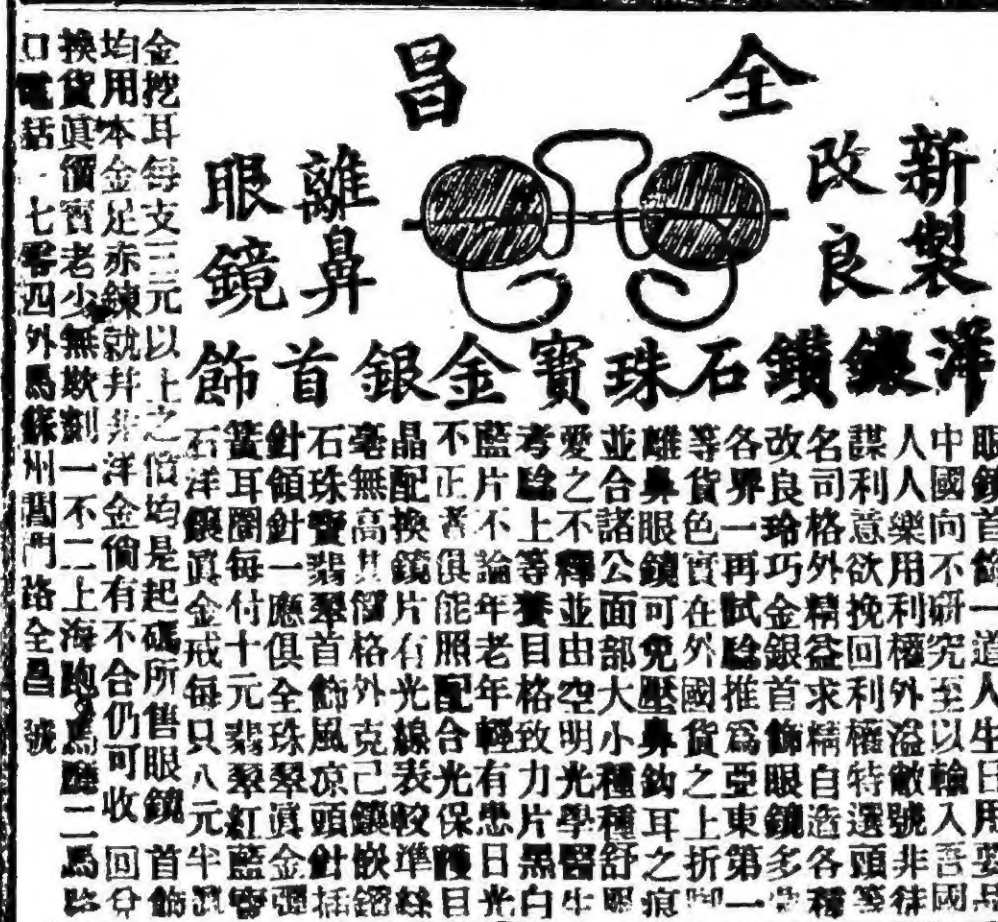 全昌
新製
改良
離鼻
眼鏡
洋鑲鑽石珠寶金銀首飾
眼鏡首飾一道人生日用要品
中國向不研究至以輸入吾國
人人樂用利權外溢敝號非徒
謀利意欲挽回利權特選頭等
名司格外精益求精自造各種
改良玲巧金銀首飾眼鏡多
各界一再試驗推爲亞東第一
等貨色實在外國貨之上折脚
離鼻眼鏡可免壓鼻鈎耳之痕
並合諸公面部大小種種舒
愛之不釋並由空明光學醫生
考驗上等養目格致力片黑白
藍片不論年老年輕有患日光
不正者俱能照配合光保護目
晶配換鏡片有光線表較準絲
毫無高其價格外克己鑲嵌鑽
石珠寶翡翠首飾風凉頭針括
針領針一應俱全珠翠眞金彈
簧耳圈每付十元翡翠紅藍寶
石洋鑲眞金戒每只八元半
金挖耳每支三元以上之價均是起碼所售眼鏡首飾
均用本金足赤鍊就幷非洋金價有不合仍可收回分
換貨眞價實老少無欺劃一不二上海跑馬廳二馬路
口電話七零四外馬蘇州閶門路全昌號